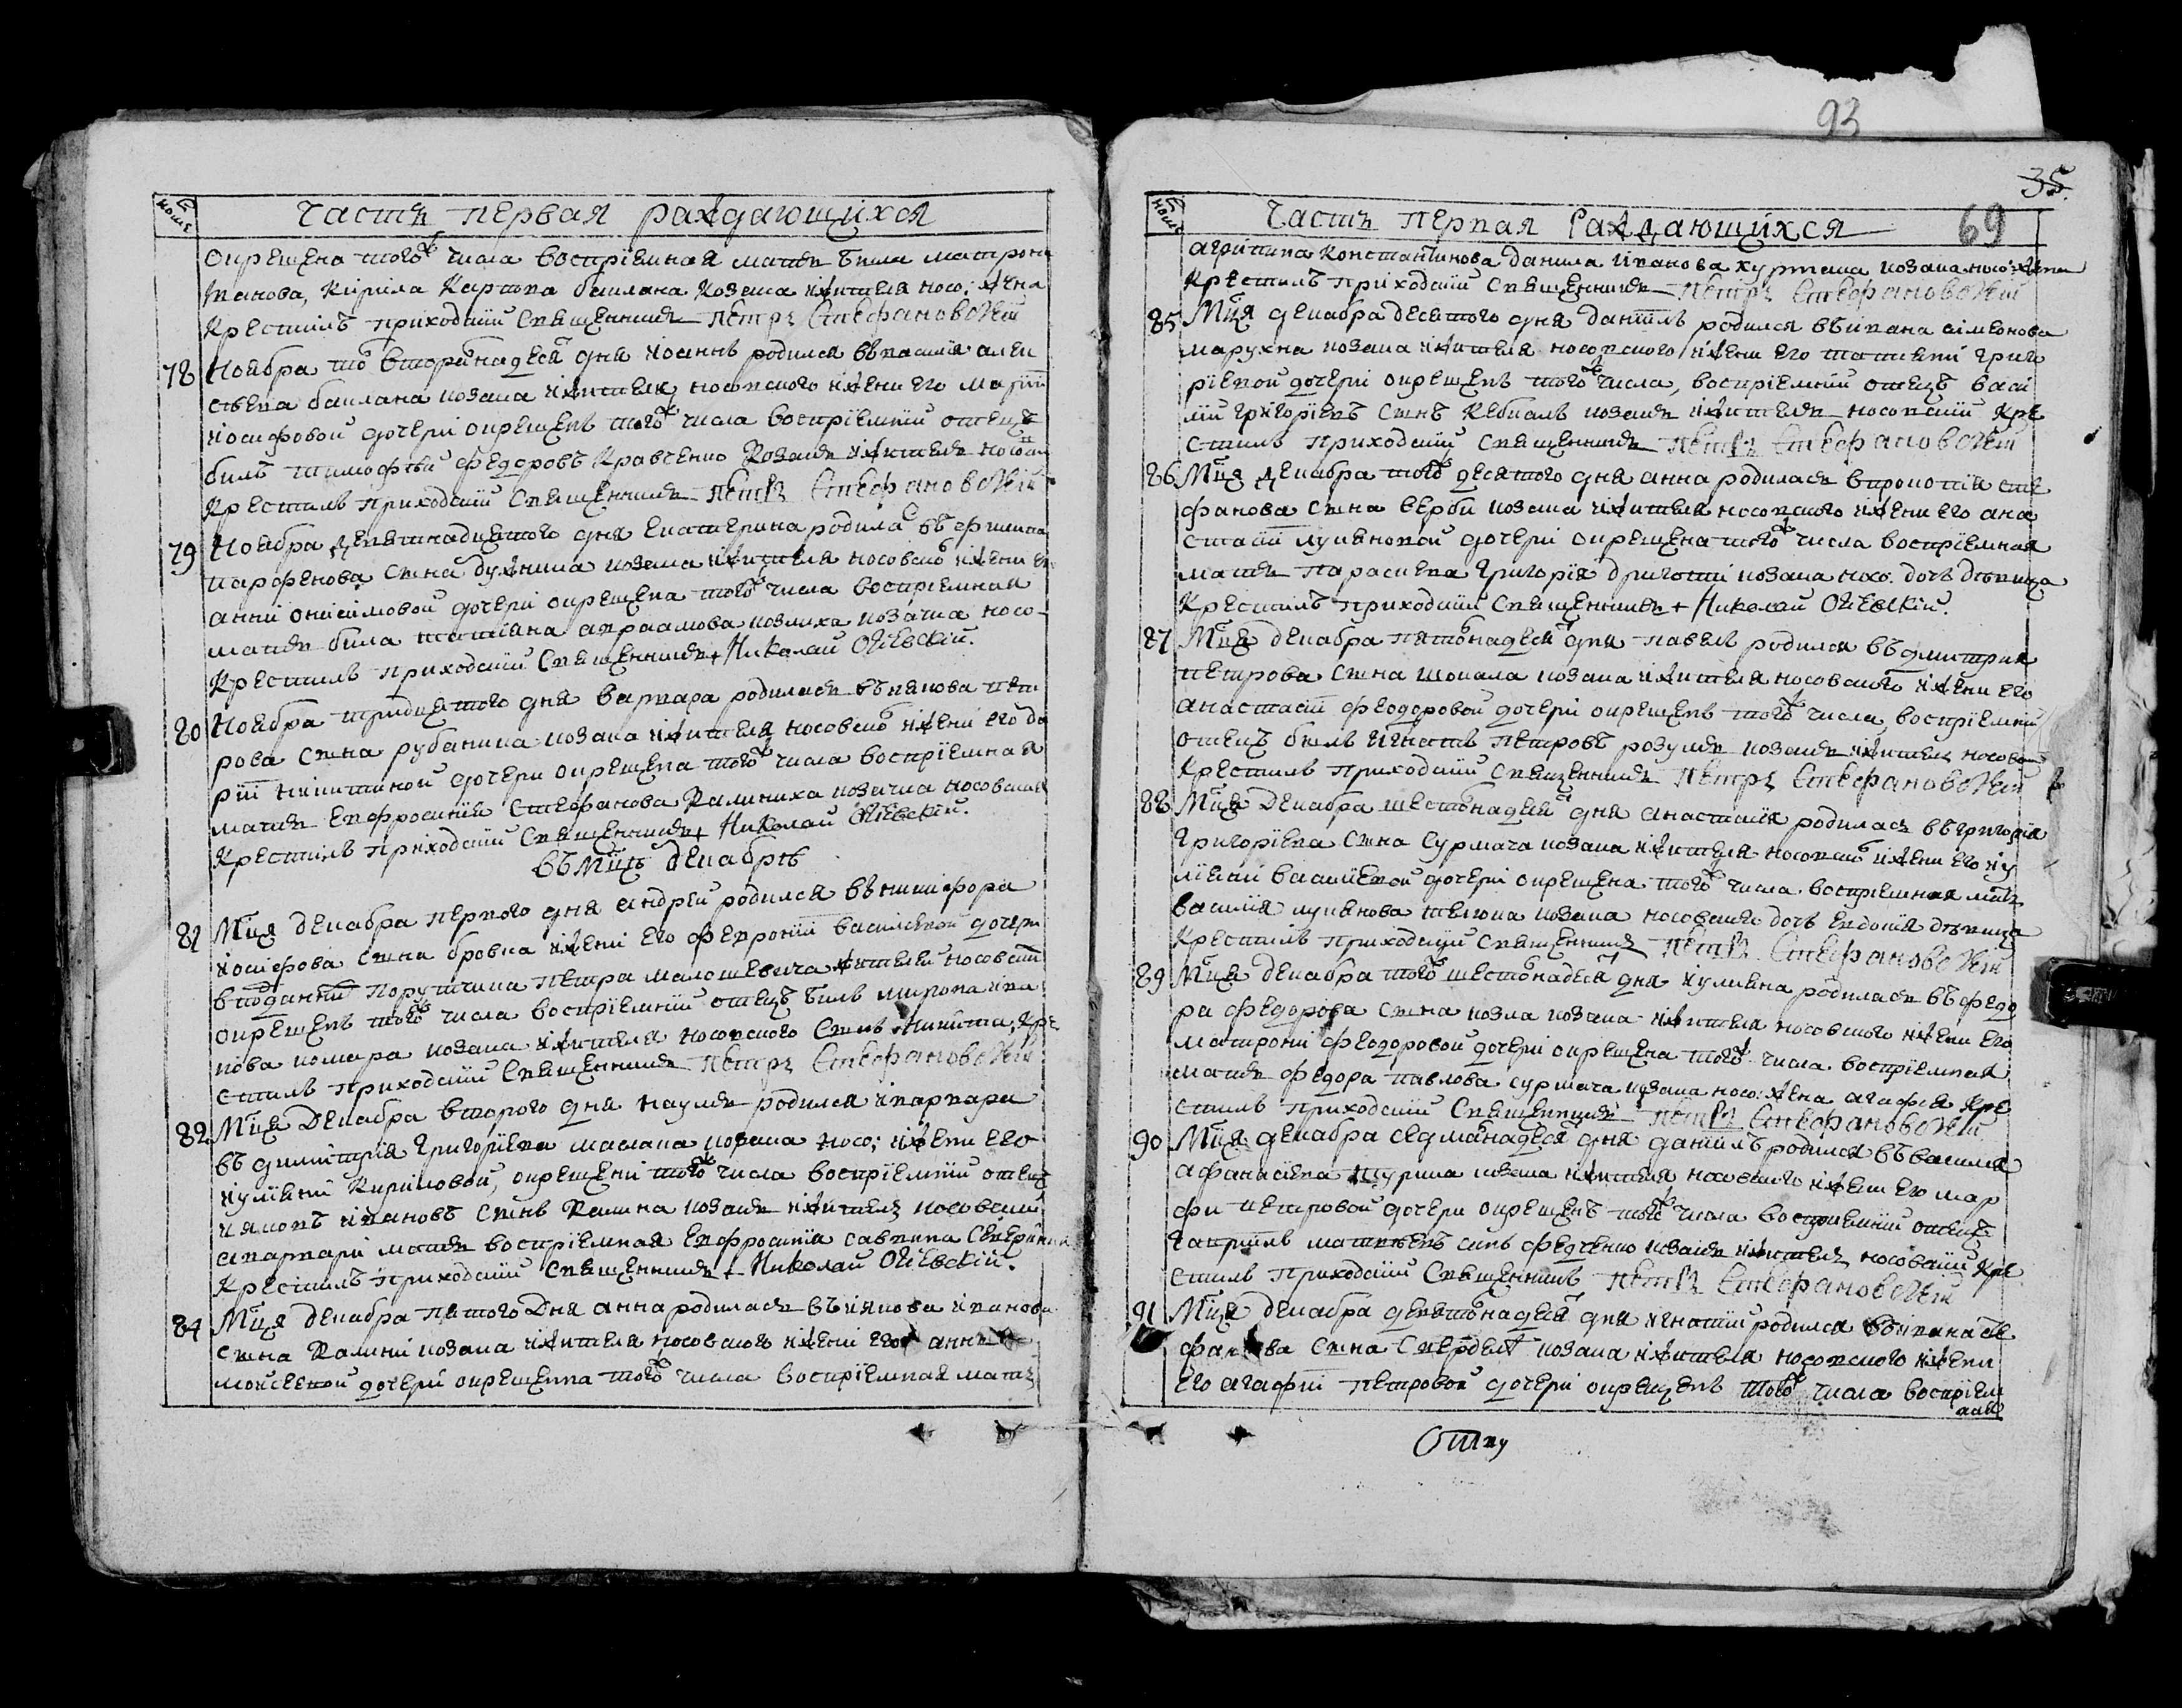 номе
часть первая раждающихся
окрещена того ж числа воспрiемная мать была матрона
Иванова, Кирила Карпова баклана козака жителя носо: жена
Крестилъ приходскiй священникъ Петръ Стефановскiй
78 Ноября то второнадеся дня иоаннъ родился въ василiя алек
сѣева баклана козака жителя носовского и жени его марiи
иосифовой дочерi окрещенъ того ж числа воспрiемнiй отецъ
билъ тимофѣй федоровъ Кравченко козакъ житель носовск
Крестилъ приходскiй священникъ Петръ Стефановскiй
79 Ноября девятнадцятого дня екатерина родилас въ филипа
парфенова сына бужника козака жителя носовско и жени ег
аннiи онисимовой дочерi окрещена того ж числа воспрiемная
мать била татiяна авраамова козлиха козачка носо-
Крестилъ приходскiй священникъ + Николай Ойевскiй.
80 Ноября тридцятого дня варвара родилася въ якова пет
рова сына рубаника козака жителя носовско и женi его да
рiи никитиной дочери окрещена того ж числа воспрiемная
мать Евфросинiя Стефанова Калиниха козачка носовская
Крестилъ приходскiй священникъ + Николай Ойевскiй.
въ мцѣ декабрѣ
81 Мця декабра первого дня андрей родился въ никифора
иосифова сына бровка и женi его февронiи василевой дочери
в подданнiй порутчика Петра малошевича жителей носовскiй
окрещенъ того ж числа воспрiемнiй отецъ билъ мирона ива
нова комара козака жителя носовского сынъ никита, Кре
стилъ приходскiй священникъ Петръ Стефановскiй
82 Мця Декабра второго дня наумъ родился и варвара
въ димитрiя григорiева маслака козака носо; и жени его
иулiянiи Кириловой, окрещенi того ж числа воспрiемнiй отецъ
яковъ ивановъ сынъ Калина козакъ житель носовскiй
а варвари мать воспрiемная Евфросинiя саввина северина
Крестилъ приходскiй священникъ + Николай Ойевскiй.
84 Мця декабра пятого Дня анна родилася въ якова иванова
сына Калини козака жителя носовского и женi его анни
мойсеевой дочерi окрещенна того ж числа воспрiемная мать
93
35
69
номе
часть первая Раждающихся
агрипина Константинова данила иванова курмана козака носо: жена
Крестилъ приходскiй священникъ Петръ Стефановскiй
85 Мця декабра десятого дня данiилъ родился въ ивана сiмеонова
марухна козака жителя носовского и жени его татiянi григо
рiевой дочерi окрещенъ того ж числа, воспрiемнiй отецъ васи
лiй григорiевъ сынъ Кебкалъ козакъ житель носовскiй Кре
стилъ приходскiй священникъ Петръ Стефановскiй
86 Мця декабра того ж десятого дня анна родилася в прокопiя сте
фанова сына верби козака жителя носовского и жени его ана
стасiи лукяновой дочерi окрещена того ж числа воспрiемная
мать параскева григорiя дригоши козака носо. дочь дѣвица
Крестилъ приходскiй священникъ + Николай Ойевскiй.
87 Мця декабра пятонадеся дня павелъ родился въ дмитрия
петрова сына шокала козака жителя носовского и жени его
анастасiи феодоровой дочерi окрещенъ того ж числа воспрiемнiй
отецъ былъ игнатъ петровъ розумъ козакъ житель носовскiй
Крестилъ приходскiй священникъ Петръ Стефановскiй
88 Мця Декабра шестонадеся дня анастасiя родилась въ григорiя
григорiева сына сурмача козака жителя носовско и жени его иу
лiянiи василiевой дочерi окрещена того ж числа воспрiемная мать
василiя лукянова козака носовского дочь евдокiя дѣвица
Крестилъ приходскiй священникъ Петръ Стефановскiй
89 Мця декабра того ж шестонадеся дня иулиана родилася въ федо
ра федорова сына козла козака жителя носовского и жени его
матронi феодоровой дочерi окрещена того ж числа воспрiемная
мать федора павлова сурмача козака носо: жена агафiя Кре
стилъ приходскiй священникъ Петръ Стефановскiй
90 Мця декабра седмонадеся дня данiилъ родился въ василя
афанасiева козака жителя носовского и жени его мар
фи петровой дочери окрещенъ того ж числа воспрiемнiй отецъ
гаврiилъ матвѣевъ синъ федченко козакъ житель носовскiй Кре
стилъ приходскiй священникъ Петръ Стефановскiй
91 Мця декабра девятонадеся дня игнатiй родился въ ивана сте
фанова сына козака жителя носовского и жени
его агафiи петровой дочерi окрещенъ того ж числа воспрiем